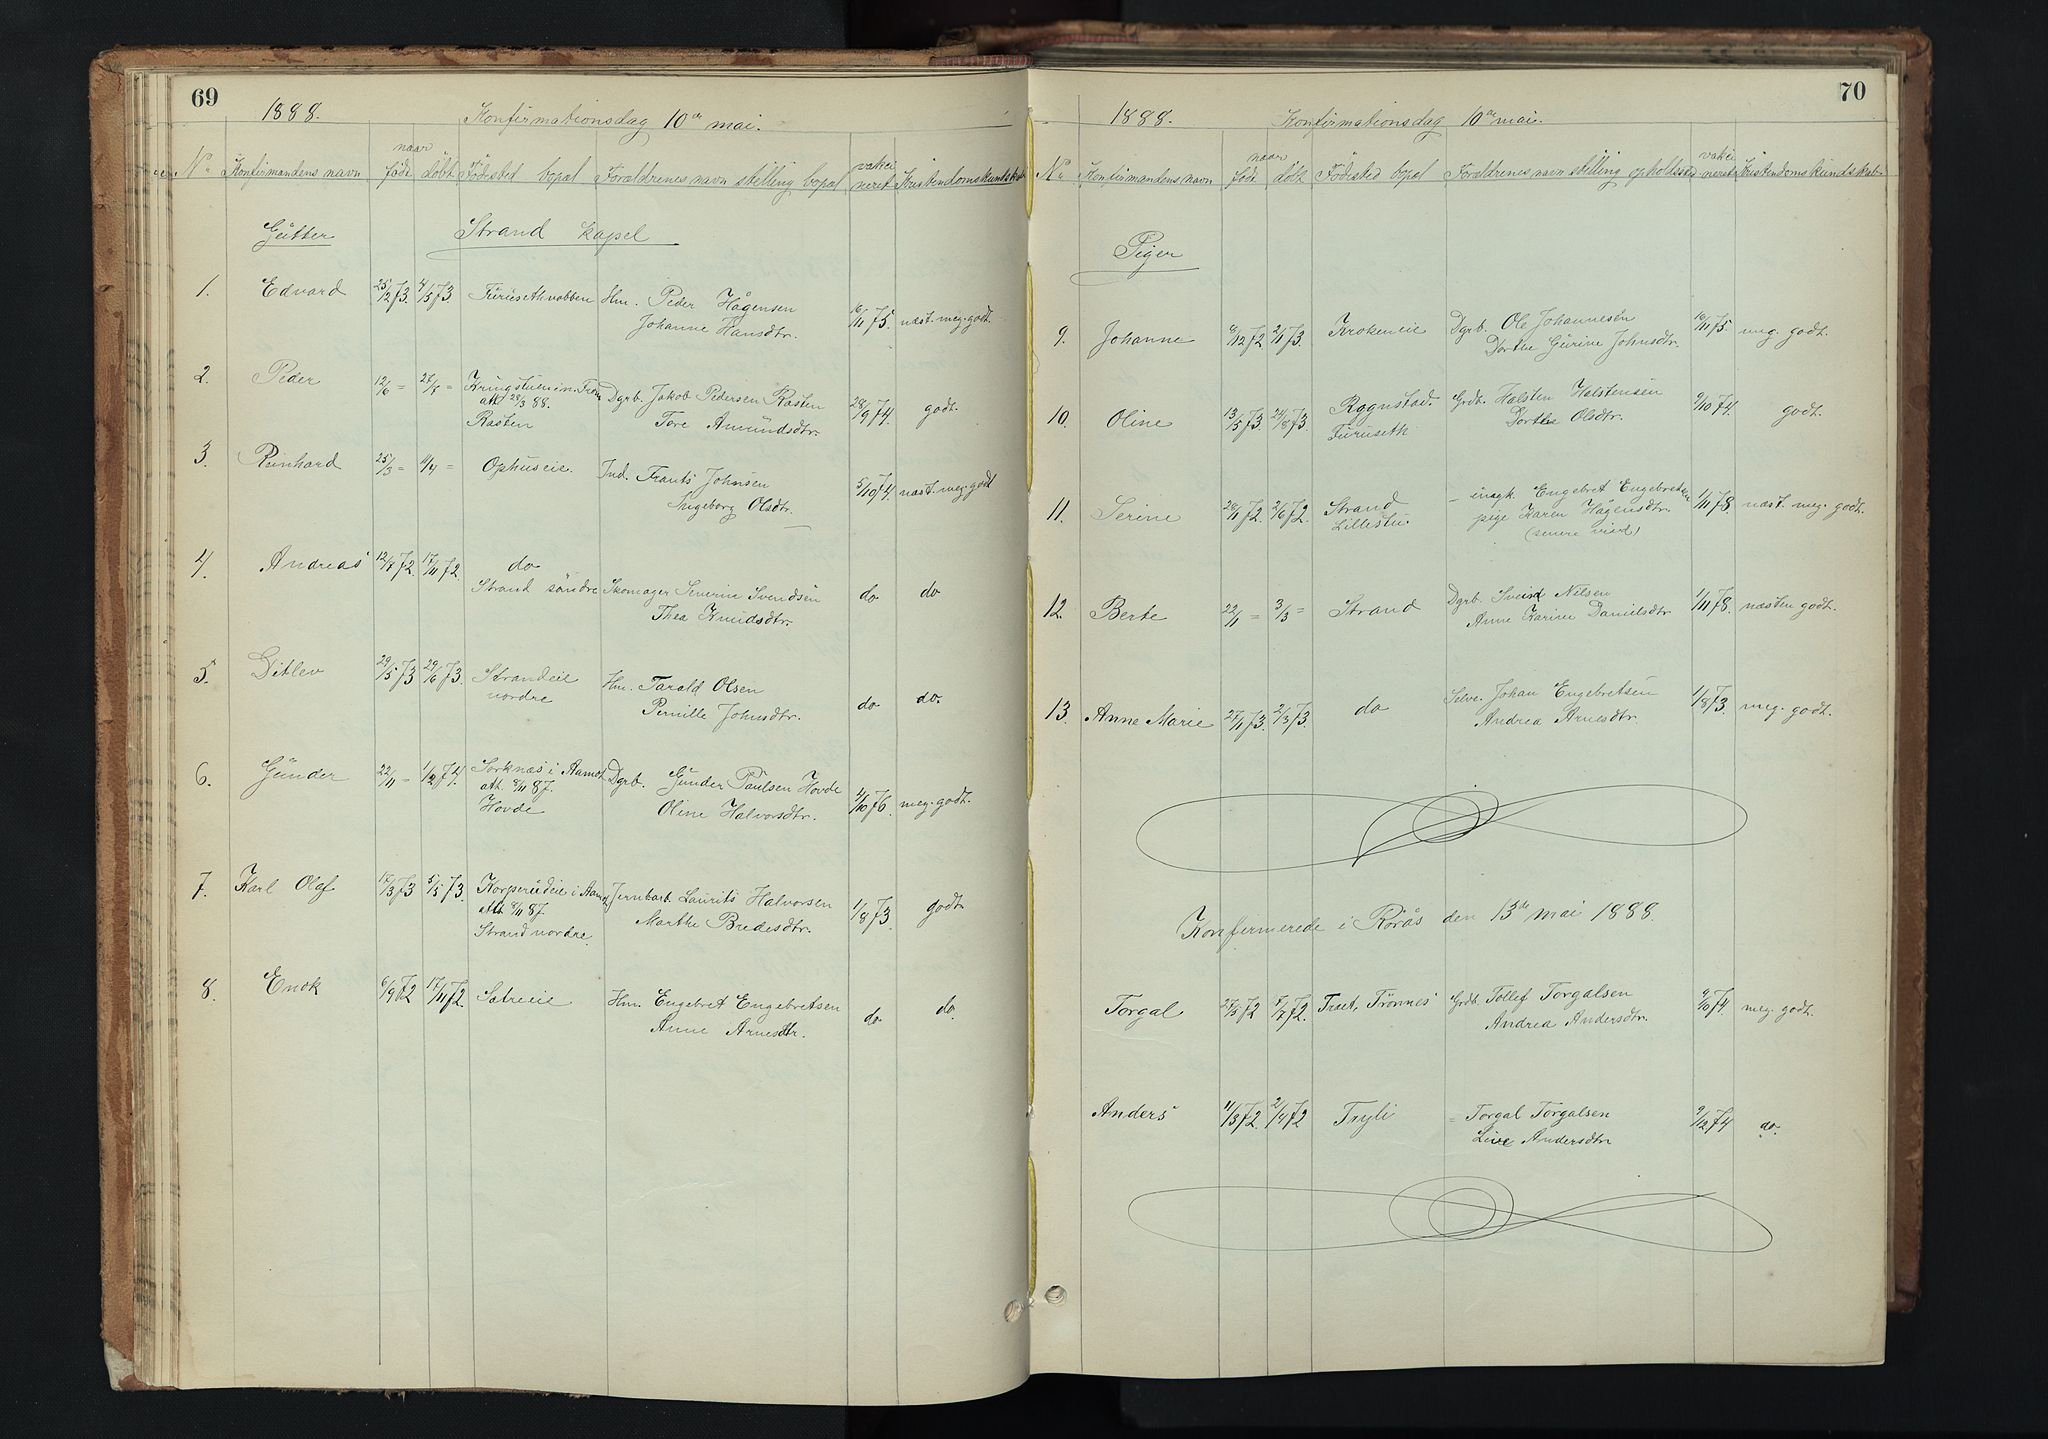 69
1888. Konfirmationsdag 10de mai.
No Konfirmandens navn naar født døbt Fødested bopæl Forældrenes navn stilling bopæl vakcineret Kristendomskundskab
Gutter Strand kapel
1. Edvard 4/5 73 Hm. Peder Hågensen
Johanne Hansdtr. 16/11 75 næst. meg. godt.
2. Peder 12/6 = Dgrb. Jakob Pedersen Rasten
att 28/3 88.
Rasten Tore Amundsdtr. 28/9 74. godt.
3. Reinhard 25/3 = Ophuseie. Ind. Frants Johnsen
Ingeborg Olsdtr. 5/10 74. næst. meg. godt
4. Andreas 17/11 72. do
Strand søndre Skomager Severin Svendsen do do
Thea Knudsdtr.
5. Ditlev 29/5 73 29/6 73. Strandeie
nordre Hm. Tarald Olsen
Pernille Johnsdtr. do do.
6. Gunder 22/11 = 1/2 74. Sorknæs i Aamot Dgrb. Gunder Paulsen Hovde
att. 8/11 87.
Hovde Oline Halvorsdtr. 4/10 76. meg. godt.
7. Karl Olaf 17/3 73 5/5 73. Korperudeie i Aamot Jernbarb. Laurits Halvorsen
att. 8/11 87.
Strand nordre. Marthe Bredesdtr. 1/8 73 godt.
8. Enok 6/9 72 17/11 72. Sætreeie Hm. Engebret Engebretsen
Anne Arnesdtr. do do.
70
1888. Konfirmationsdag 10de mai.
No Konfirmandens navn naar født døbt Fødested bopæl Forældrenes navn stilling opholdssted vakcineret Kristendomskundskab.
Piger
9. Johanne 8/12 72 2/1 73. Krokeneie Dgrb. Ole Johannesen
Dorthe Gurine Johnsdtr. 16/11 75. meg. godt.
10. Oline 13/5 73 24/8 73. Rognstad. Grdb. Halsten Halstensen
Furuseth Dorthe Olsdtr. 9/10 74. godt.
11. Serine 2/6 72. Strand
Lillestu. – ungk. Engebret Engebretsen
pige Karen Hågensdtr.
(senere viet) 1/11 78. næst. meg. godt.
12. Berte 22/1 = 3/3 = Strand Dgrb. Svend Nilsen
Anne Karine Danielsdtr 1/11 78. næsten godt.
13. Anne Marie 27/1 73. 2/3 73. do Selve. Johan Engebretsen
Andrea Arnesdtr. 1/8 73. meg. godt.
Konfirmerede i Rørås den 13de mai 1888.
Torgal 27/5 72 7/7 72. Træet, Trønnes Grdb. Tollef Torgalsen
Andrea Andersdtr. 9/10 74. meg. godt.
Anders 11/3 72. 2/4 72 Tryli = Torgal Torgalsen
Live Andersdtr 9/12 74 do.